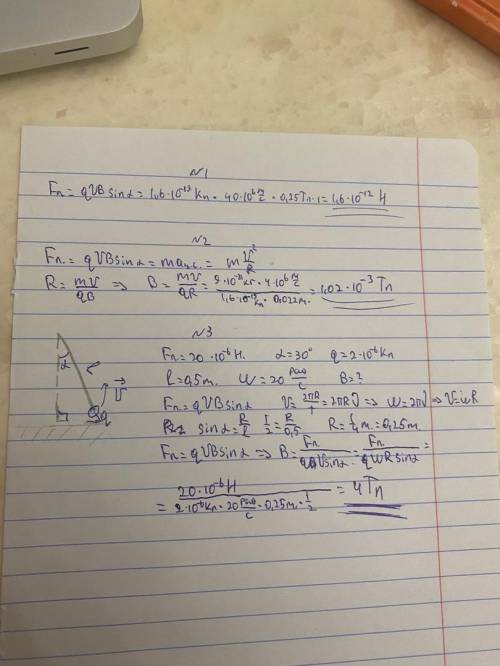 №1
Fл = qVBsinα = 1,6·10⁻¹⁹Кл · 40·10⁶ м/с · 0,25Тл · 1 = 1,6·10⁻¹² Н
№2
Fл. = qVBsinα = maц.с. = m V²/R
R = mV/qB => B = mV/qR = 9·10⁻³¹кг · 4·10⁶ м/с / 1,6·10⁻¹⁹Кл · 0,022м. = 1,02·10⁻³ Тл
№3
Fл = 20·10⁻⁶Н. α = 30° q = 2·10⁻⁶Кл
l = 0,5м. W = 20 рад/с B = ?
Fл = qVBsinα V = 2πR/T = 2πRν => W = 2πν => V = WR
sinα = R/l 1/2 = R/0,5 R = 1/4 м. = 0,25м.
Fл = qVBsinα => B = Fл/qVsinα = Fл./qWRsinα =
= 20·10⁻⁶Н / 2·10⁻⁶Кл · 20 рад/с · 0,25м. · 1/2 = 4Тл
α
l
V
q